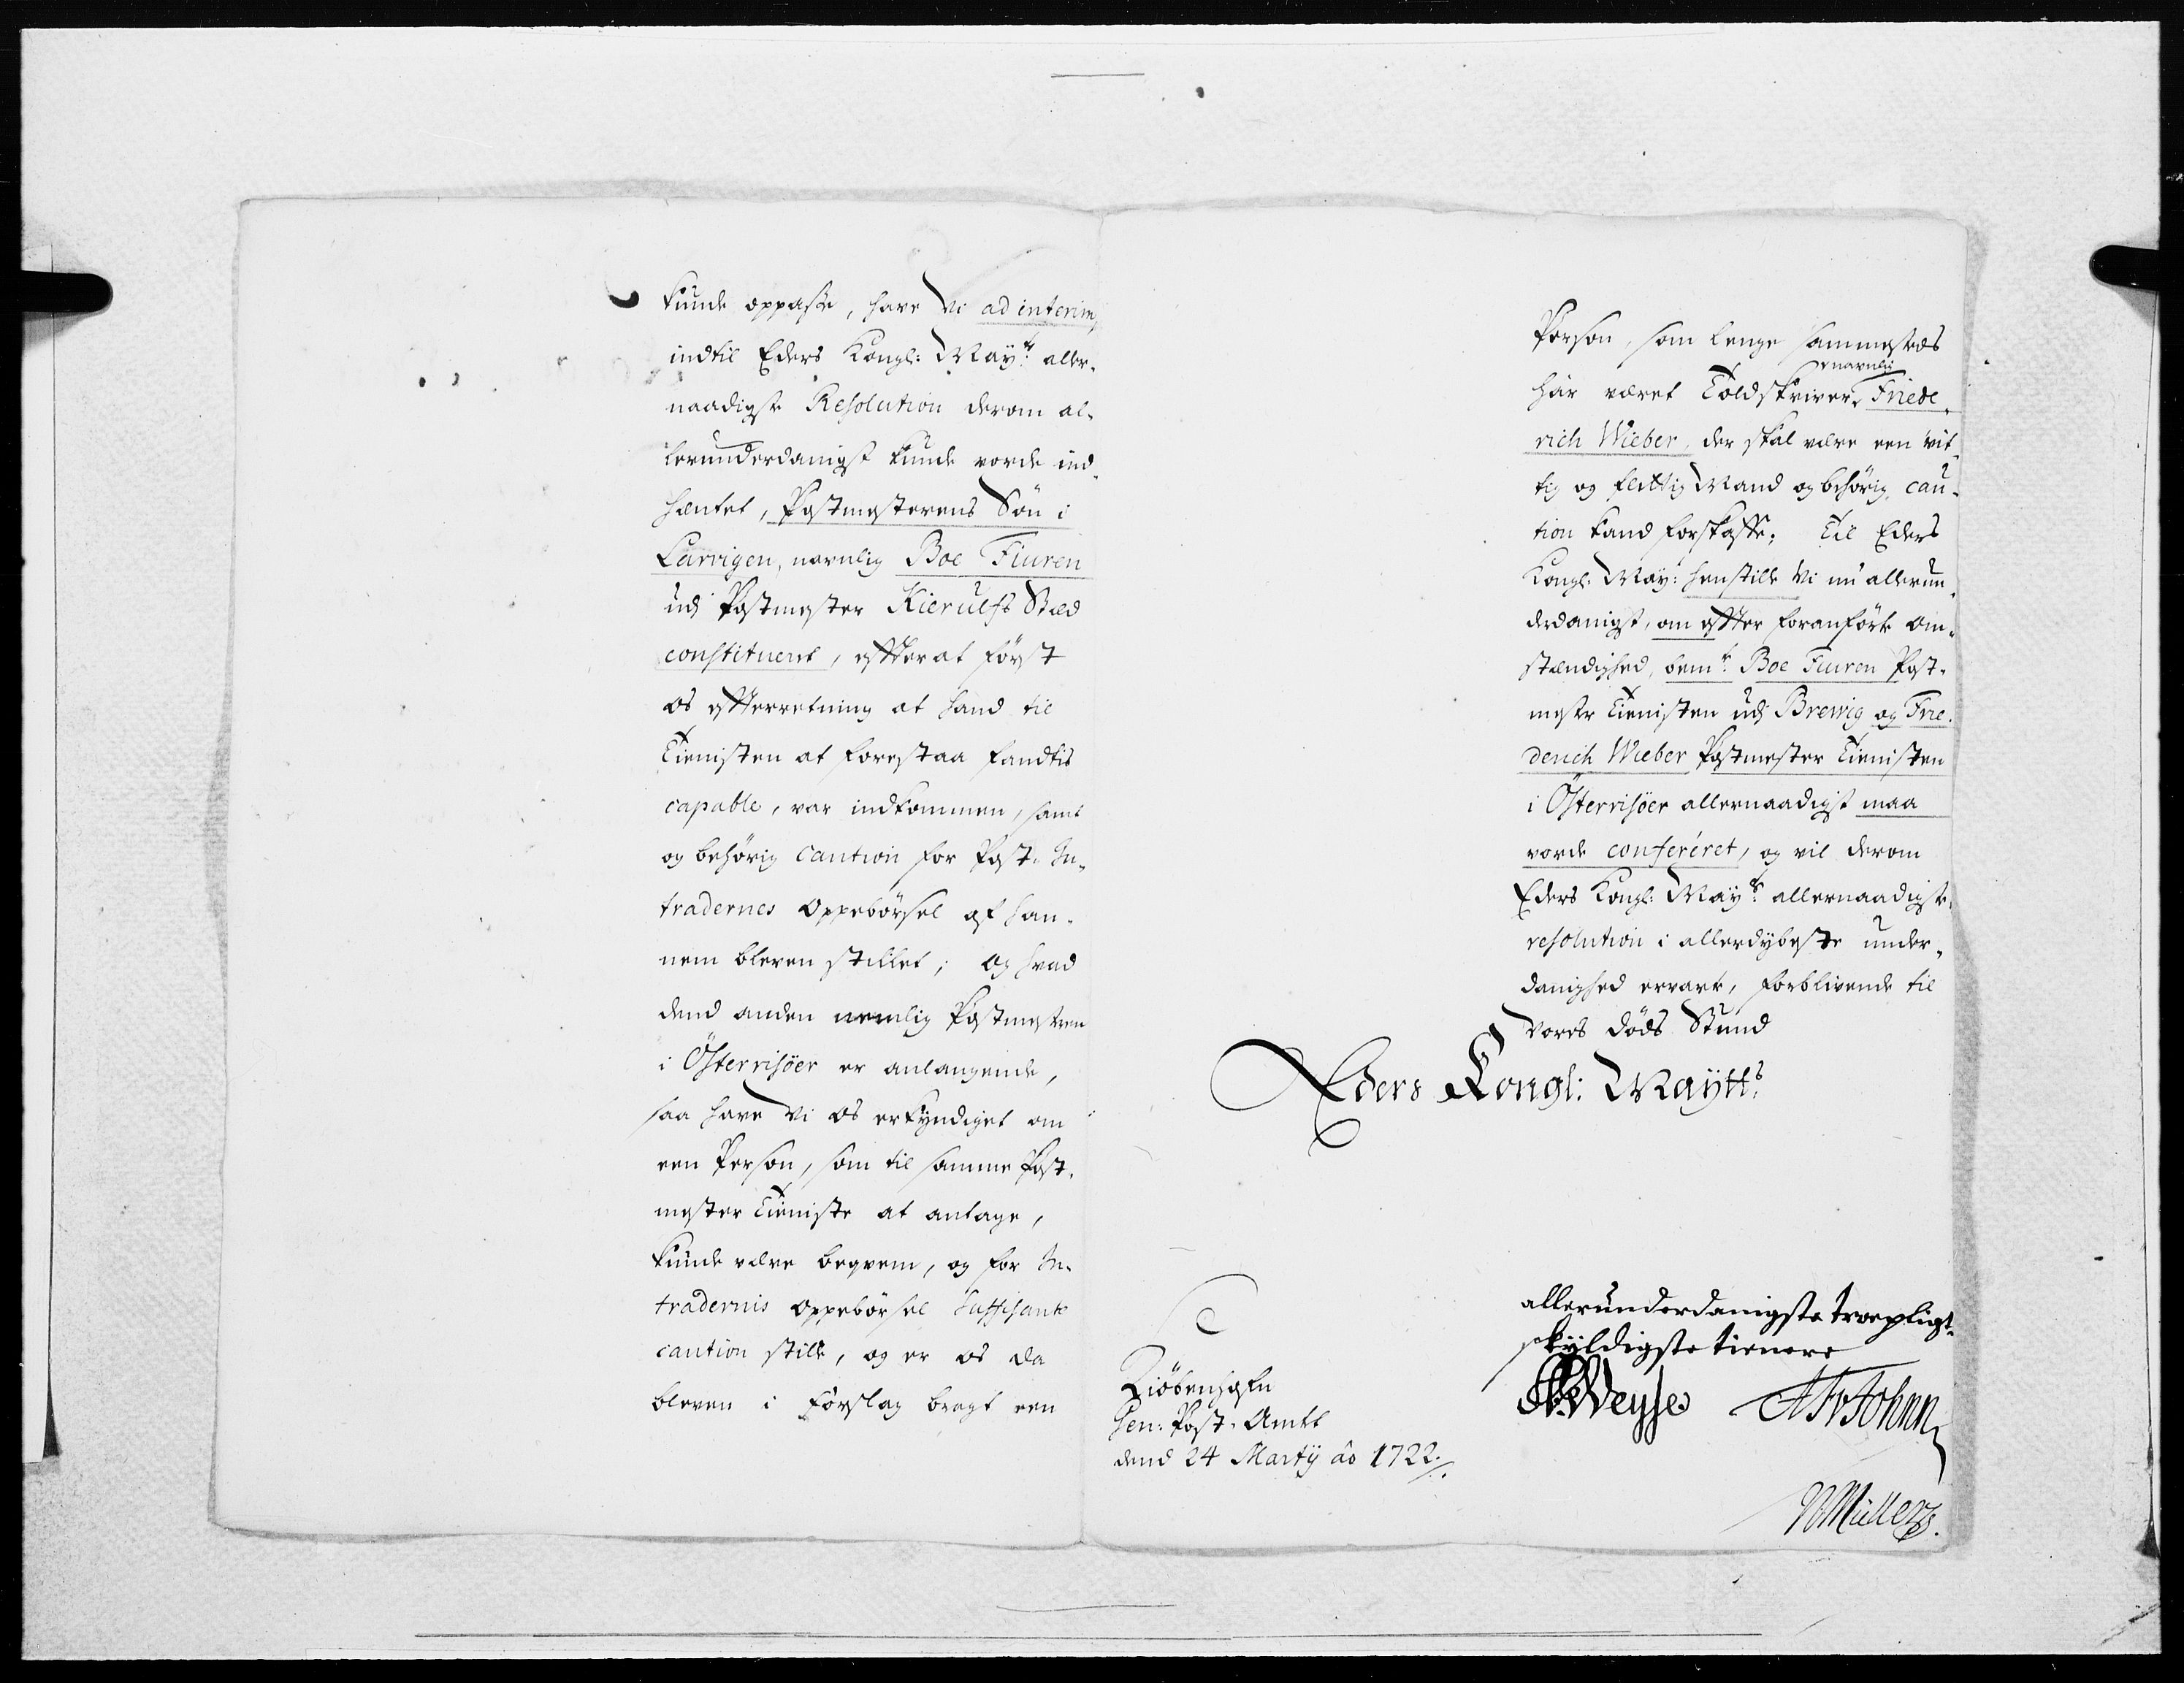 kunde oppasse, have Vi ad interim,
indtil Eders Kongl: Mayts. aller-
naadigste Resolution derom al-
lerunderdanigst kunde vorde ind-
hæntet, Postmesterens Søn i
Larvigen, navnlig Boe Fiuren
udi Postmester Kierulfs Stæd
constitueret, effterat først
os effterretning at hand til
Tienisten at forestaa fandtis
capable, var indkommen, samt
og behørig caution for Post-In-
tradernes Oppebørsel af han-
nem bleven stillet; Og hvad
dend anden nemlig Postmesteren
i Østerrisöer er anlangende,
saa have Vi os erkyndiget om
een Person, som til samme Post-
mester Tieniste at antage,
kunde være beqvem, og for In-
tradernis Oppebørsel suffisant
caution stille, og er os da
bleven i Forslag bragt een
Person, som lenge sammesteds
navnlig
har været Toldskriver, Friede-
rich Wieber, der skal være een vit-
tig og flittig Mand og behørig cau-
tion kand forskaffe; Til Eders
Kongl. Mayt: henstille Vi nu allerun-
derdanigst, om effter foranførte Om-
stændighed, bemte. Boe Fiuren Post-
mester Tienisten udi Brewig og Frie-
derich Wieber Postmester Tienisten
i Østerrisöer allernaadigst maa
vorde conferéret, og vil derom
Eders Kongl: Mayts. allernaadigste
resolution i allerdybeste under-
danighed ervarte, forblivende til
Vores döds Stund
Eders Kongl: Maytts.
allerunderdanigste troepligt-
skyldigste tienere
Kiöbenhafn
Gen: Post-Amtt
dend 24 Martij ao 1722./.
Weyse
Müller.